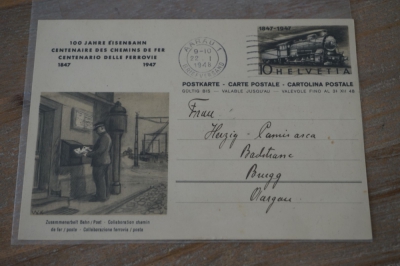 100 JAHRE EISENBAHN
CENTENAIRE DES CHEMINS DE FER
CENTENARIO DELLE FERROVIE
1847 1947
AARAU 1
1847-1947
10 HELVETIA
POSTKARTE - CARTE POSTALE - CARTOLINA POSTALE
GÜLTIG BIS - VALABLE JUSQU'AU - VALEVOLE FINO AL 31 XII 48
Frau
Herzig-Camisasca
Badstrasse
Brugg
Aargau
Zusammenarbeit Bahn / Post - Collaboration chemin
de fer / poste - Collaborazione ferrovia / posta